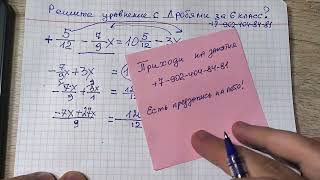 Решите уравнение с дробями за 6 класс?
+7-902-404-84-81
+ 5/12 - 7/9 x = 10 5/12 - 3x
-7/9 x + 3x =
-7x/9 + 3x/1 =
-7x+27x/9 =
Приходи на занятия
+7-902-404-84-81
Есть предзапись на лето!